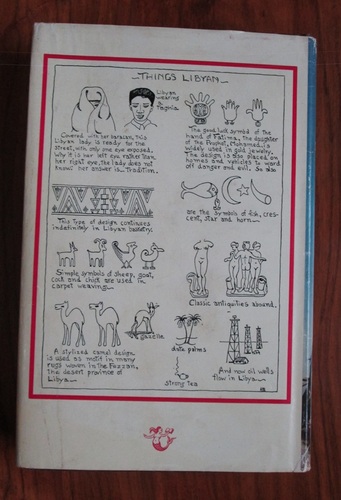 THINGS LIBYAN
Libyan
wearing
a
Taghia
Covered with her baracan, this
Libyan lady is ready for the
street, with only one eye exposed.
Why it is her left eye rather than
her right eye, the lady does not
know: her answer is—Tradition.
The good luck symbol of the
hand of Fatima, the daughter
of the Prophet, Mohamed, is
widely used in gold jewelry.
The design is also placed on
homes and vehicles to ward
off danger and evil. So also
are the symbols of fish, cres-
cent, star and horn—
This type of design continues
indefinitely in Libyan basketry.
Simple symbols of sheep, goat,
cock and chick are used in
carpet weaving—
Classic antiquities abound.
gazelle
A stylized camel design
is used as motif in many
rugs woven in the Fezzan,
the desert province of
Libya—
date palms
strong tea
And now oil wells
flow in Libya—